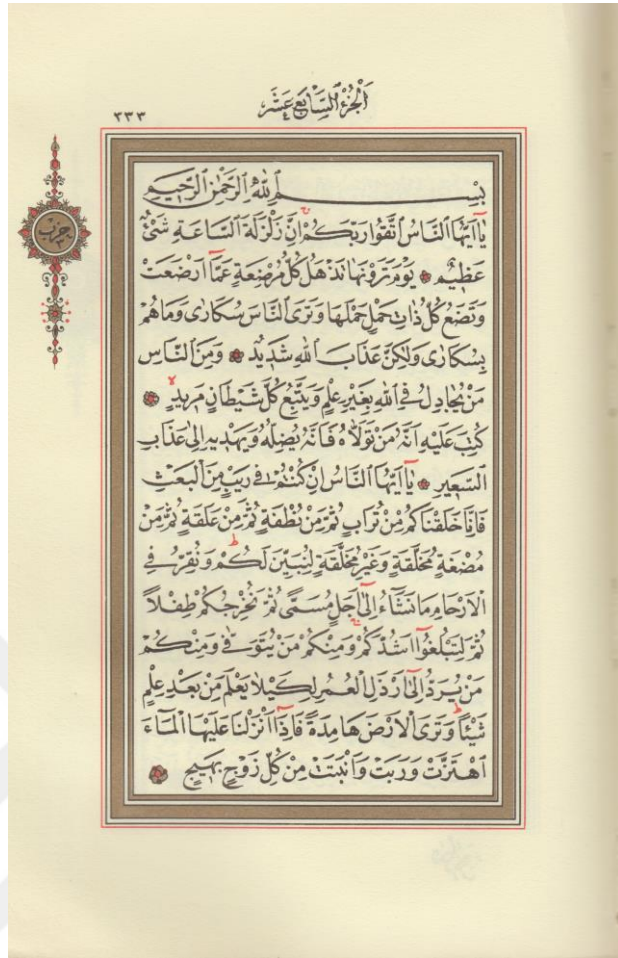 الجزء السابع عشر
٣٣٣
حزب
بسم الله الرحمن الرحيم
يَٓا اَيُّهَا النَّاسُ اتَّقُوا رَبَّكُمْ اِنَّ زَلْزَلَةَ السَّاعَةِ شَيْءٌ
عَظِيمٌ يَوْمَ تَرَوْنَهَا تَذْهَلُ كُلُّ مُرْضِعَةٍ عَمَّٓا اَرْضَعَتْ
وَتَضَعُ كُلُّ ذَاتِ حَمْلٍ حَمْلَهَا وَتَرَى النَّاسَ سُكَارٰى وَمَا هُمْ
بِسُكَارٰى وَلٰكِنَّ عَذَابَ اللّٰهِ شَدِيدٌ وَمِنَ النَّاسِ
مَنْ يُجَادِلُ فِي اللّٰهِ بِغَيْرِ عِلْمٍ وَيَتَّبِعُ كُلَّ شَيْطَانٍ مَرِيدٍ
كُتِبَ عَلَيْهِ اَنَّهُ مَنْ تَوَلَّاهُ فَاَنَّهُ يُضِلُّهُ وَيَهْدِيهِ اِلٰى عَذَابِ
السَّعِيرِ يَٓا اَيُّهَا النَّاسُ اِنْ كُنْتُمْ فِي رَيْبٍ مِنَ الْبَعْثِ
فَاِنَّا خَلَقْنَاكُمْ مِنْ تُرَابٍ ثُمَّ مِنْ نُطْفَةٍ ثُمَّ مِنْ عَلَقَةٍ ثُمَّ مِنْ
مُضْغَةٍ مُخَلَّقَةٍ وَغَيْرِ مُخَلَّقَةٍ لِنُبَيِّنَ لَكُمْ وَنُقِرُّ فِي
الْاَرْحَامِ مَا نَشَٓاءُ اِلٰٓى اَجَلٍ مُسَمًّى ثُمَّ نُخْرِجُكُمْ طِفْلًا
ثُمَّ لِتَبْلُغُٓوا اَشُدَّكُمْ وَمِنْكُمْ مَنْ يُتَوَفّٰى وَمِنْكُمْ
مَنْ يُرَدُّ اِلٰٓى اَرْذَلِ الْعُمُرِ لِكَيْلَا يَعْلَمَ مِنْ بَعْدِ عِلْمٍ
شَيْـًٔا وَتَرَى الْاَرْضَ هَامِدَةً فَاِذَٓا اَنْزَلْنَا عَلَيْهَا الْمَٓاءَ
اهْتَزَّتْ وَرَبَتْ وَاَنْبَتَتْ مِنْ كُلِّ زَوْجٍ بَهِيجٍ